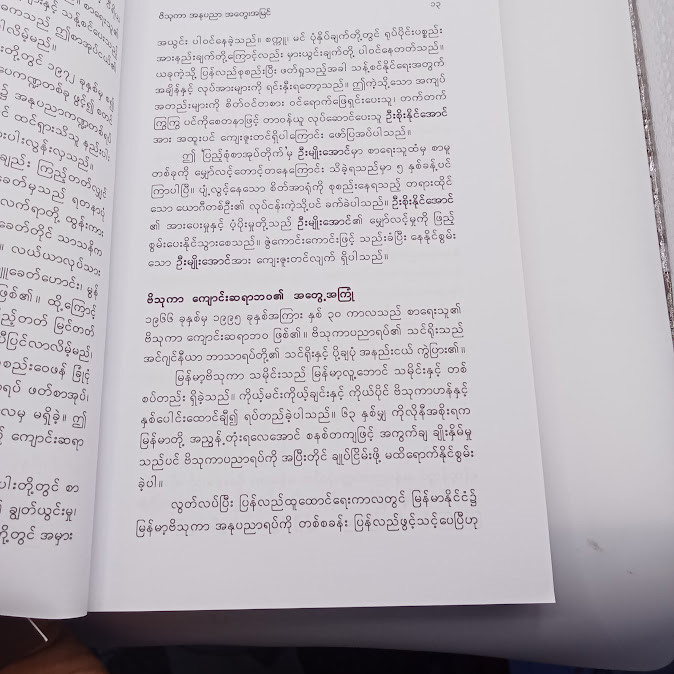 ကေသည် ဤစာအုပ်ငယ်၏
ပါလိမ့်မည်။
တို့တွင် ၁၉၇၂ ခုနှစ်မှ စ၍
ထင်ရှားသိသူ နည်းပါး
ပါးပါးလွန်းလှသည်။
ကြည့်တတ်လျှင်
ခေတ်မှသည် ရတနာပုံ
လက်ရာတို့ ထွန်းကား
ခေတ်တိုင် သာသနိက
။ လယ်ယာလုပ်သား
ဖြစ်၏။ ထို့ကြောင့်
မြင်တတ်
ပြီပြင်လာလိမ့်မည်၊
စုစည်းဝေဖန် ခြုံငုံ
ဖတ်စာအုပ်၊
လေမှ မရှိခဲ့။ ဤ
ကျောင်းဆရာ
ပါးတို့တွင် စာ
ချွတ်ယွင်းမှု၊
တို့တွင် အမှား
ဗိသုကာ အနုပညာ အတွေးအမြင် ၁၃
အယွင်း ပါဝင်နေခဲ့သည်။ စက္ကူ၊ မင် ပုံနှိပ်ချက်တို့တွင် ရုပ်ပိုင်းပစ္စည်း
အားနည်းချက်တို့ကြောင့်လည်း မှားယွင်းချက်တို့ ပါဝင်နေတတ်သည်။
ယခုကဲ့သို့ ပြန်လည်စုစည်းပြီး ဖတ်ရှုသည့်အခါ သန့်စင်နိုင်ရေးအတွက်
အချိန်နှင့် လုပ်အားများကို ရင်းနှီးရတော့သည်။ ဤကဲ့သို့သော အကျပ်
အတည်းများကို စိတ်ဝင်တစား ဝင်ရောက်ဖြေရှင်းပေးသူ၊ တက်တက်
ကြွကြွ ပင်ကိုစေတနာဖြင့် တာဝန်ယူ လုပ်ဆောင်ပေးသူ ဦးစိုးနိုင်အောင်
အား အထူးပင် ကျေးဇူးတင်ရှိပါကြောင်း ဖော်ပြအပ်ပါသည်။
ဤ 'ပြည့်စုံစာအုပ်တိုက်'မှ ဦးမျိုးအောင်မှာ စာရေးသူထံမှ စာမူ
တစ်ခုကို မျှော်လင့်တောင့်တနေကြောင်း သိခဲ့ရသည်မှာ ၅ နှစ်ခန့်ပင်
ကြာပါပြီ။ ပျံ့လွင့်နေသော စိတ်အာရုံကို စုစည်းနေရသည့် တရားထိုင်
သော ယောဂီတစ်ဦး၏ လုပ်ငန်းကဲ့သို့ပင် ခက်ခဲပါသည်။ ဦးစိုးနိုင်အောင်
၏ အားပေးမှုနှင့် ပံ့ပိုးမှုတို့သည် ဦးမျိုးအောင်၏ မျှော်လင့်မှုကို ဖြည့်
စွမ်းပေးနိုင်သွားစေသည်။ ဇွဲကောင်းကောင်းဖြင့် သည်းခံပြီး နေနိုင်စွမ်း
သော ဦးမျိုးအောင်အား ကျေးဇူးတင်လျက် ရှိပါသည်။
ဗိသုကာ ကျောင်းဆရာဘဝ၏ အတွေ့အကြုံ
၁၉၆၆ ခုနှစ်မှ ၁၉၉၅ ခုနှစ်အကြား နှစ် ၃၀ ကာလသည် စာရေးသူ၏
ဗိသုကာ ကျောင်းဆရာဘဝ ဖြစ်၏။ ဗိသုကာပညာရပ်၏ သင်ရိုးသည်
အင်ဂျင်နီယာ ဘာသာရပ်တို့၏ သင်ရိုးနှင့် ပို့ချပုံ အနည်းငယ် ကွဲပြား၏။
မြန်မာ့ဗိသုကာ သမိုင်းသည် မြန်မာ့လူ့ဘောင် သမိုင်းနှင့် တစ်
စပ်တည်း ရှိခဲ့သည်။ ကိုယ့်မင်းကိုယ့်ချင်းနှင့် ကိုယ်ပိုင် ဗိသုကာဟန်နှင့်
နှစ်ပေါင်းထောင်ချီ၍ ရပ်တည်ခဲ့ပါသည်။ ၆၃ နှစ်မျှ ကိုလိုနီအစိုးရက
မြန်မာတို့ အညွန့်တုံးရလေအောင် စနစ်တကျဖြင့် အကွက်ချ ချိုးနှိမ်မှု
သည်ပင် ဗိသုကာပညာရပ်ကို အပြီးတိုင် ချုပ်ငြိမ်းဖို့ မထိရောက်နိုင်စွမ်း
ခဲ့ပါ။
လွတ်လပ်ပြီး ပြန်လည်ထူထောင်ရေးကာလတွင် မြန်မာနိုင်ငံ၌
မြန်မာ့ဗိသုကာ အနုပညာရပ်ကို တစ်စခန်း ပြန်လည်ဖွင့်သင့်ပေပြီဟု